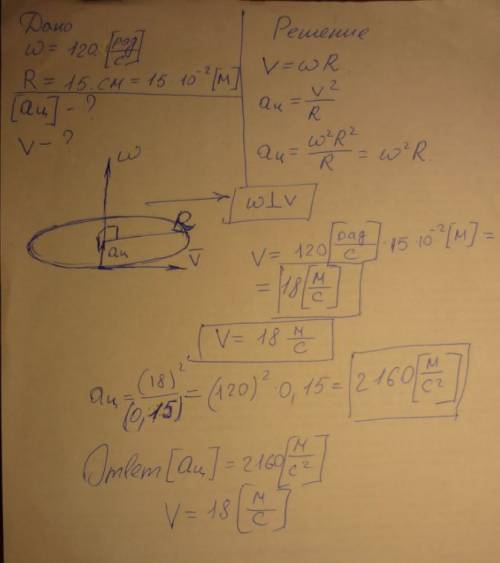 Дано
ω = 120 [рад/с]
R = 15 см = 15 · 10⁻² [м]
[aц] - ?
v - ?
Решение
V = ωR
aц = v²/R
aц = ω²R²/R = ω²R.
ω
R
aц
v̅
ω⊥v
V = 120 [рад/с] · 15 · 10⁻² [м] =
= 18 [м/с]
V = 18 м/с
aц = (18)²/(0,15) = (120)² · 0,15 = 2160 [м/с²]
Ответ [aц] = 2160 [м/с²]
V = 18 [м/с]